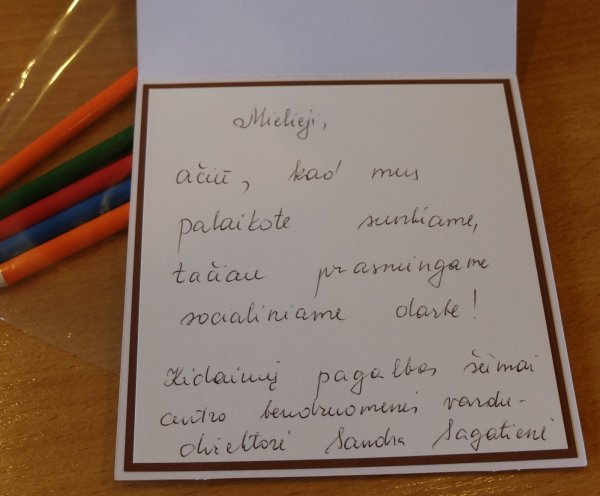 Mielieji,
ačiū, kad mus
palaikote sunkiame,
tačiau prasmingame
socialiniame darbe!
Kėdainių pagalbos šeimai
centro bendruomenės vardu -
direktorė Sandra Sagatienė